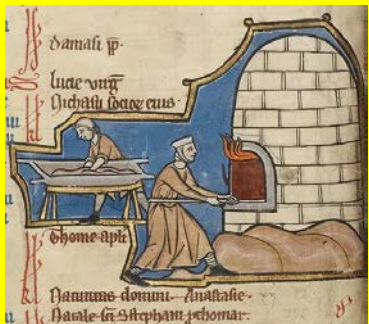 damasi pp̄.
lucie uirg̅
Nichasii socior̄ eius.
Thome apłi
Natiuitas domini. Anastasie.
Natale sc̄i Stephani p̱thomar̄.